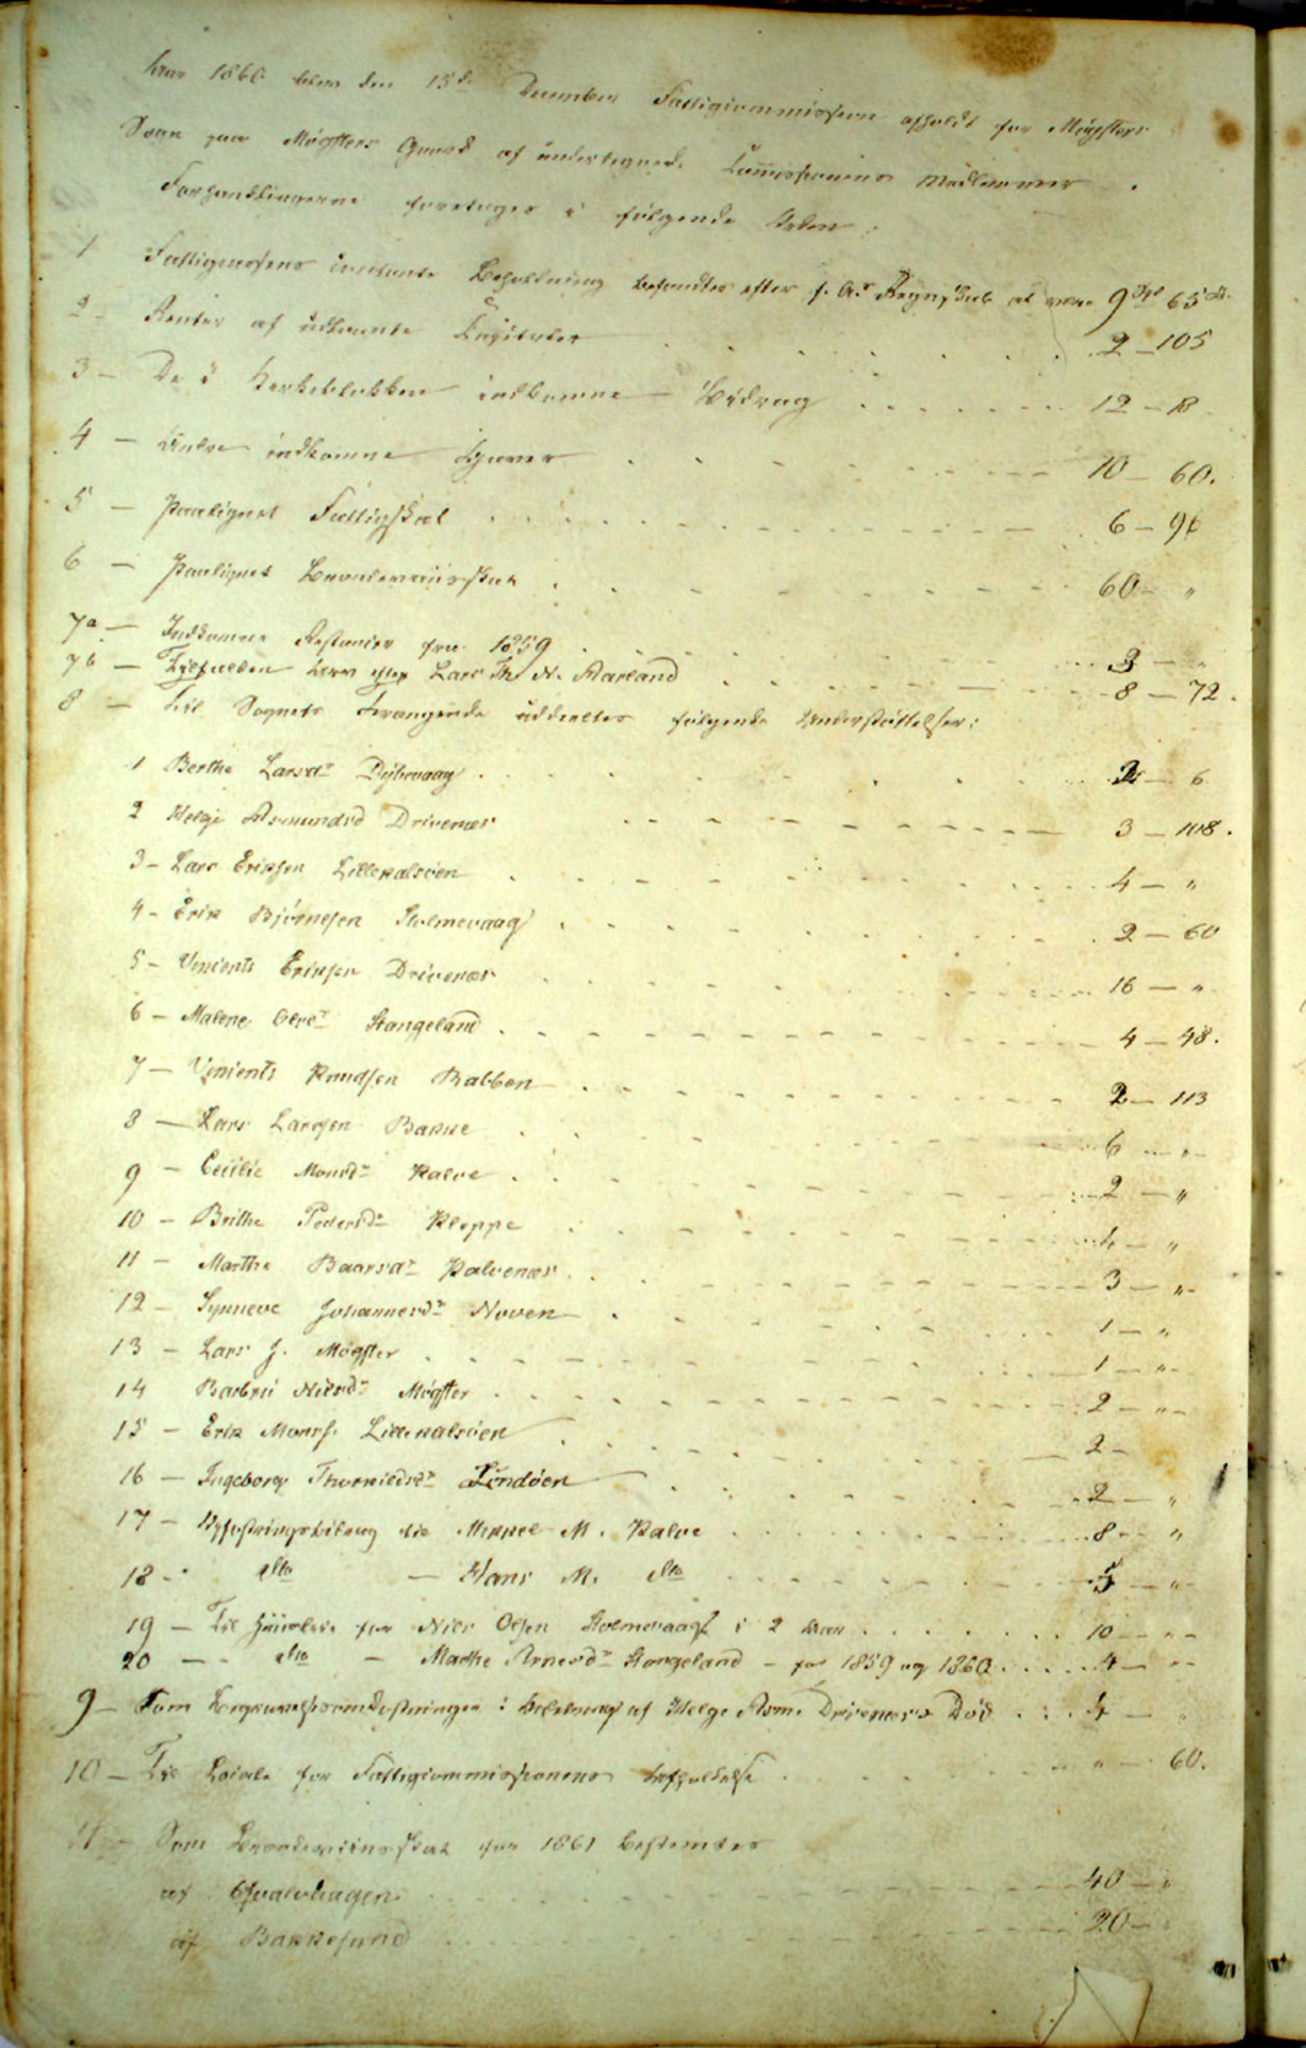 Aar 1860 blev den 15de December Fattigcommission afholdt for Møgsters
Sogn paa Møgsters Gaard af undertegnede Commissionens Medlemmer.
Forhandlingerne foretoges i følgende Orden:
1 Fattigcassens contante Beholdning befandtes efter f. A.s Regnskab at være 9 Spd 65 s.
2 - Renter af udlaante Capitaler 2 - 105
3 - De i Kirkeblokken indkomne Bidrag 12 - 18
4 - Andre indkomne Gaver 10 - 60.
5 - Paalignet Fattigskat 6 - 96
6 - Paalignet Brændeviinsskat 60 - "
7a - Indkomne Restancer fra 1859 3 - "
7b - Tilfalden Arv efter Lars Th. N. Aarland 8 - 72.
8 - Til Sognets Trængende uddeeltes følgende Understøttelser:
1 Berthe Larsdr Dybevaag 2 - 6
2 Helge Asmundsd Drivenæs 3 - 108.
3 - Lars Eriksen Lillekalsøen 4 - "
4 - Erik Bjørnesen Stolmevaag 2 - 60
5 - Vincents Eriksen Drivenæs 16 - "
6 - Malene Olsdr Stangeland 4 - 48.
7 - Vincents Knudsen Rabben 2 - 113
8 - Lars Larssen Bakke 6 - "
9 - Cecilie Monsdr Kalve 2 - "
10 - Brithe Pedersdr Kleppe 4 - "
11 - Marthe Baarsdr Kalvenæs 3 - "
12 - Synneve Johannesdr Noven 1 - "
13 - Lars J. Møgster 1 - "
14 Barbru Nilsdr Møgster 2 - "
15 - Erik Monss. Lillekalsøen 2 -
16 - Ingeborg Lindøen 2 - "
17 - Opfostringsbidrag til Mikkel M. Kalve 8 - "
18 - dto - Hans M. dto 5 - "
19 - Til Huusleie for Nils Olsen Stolmevaag i 2 Aar 10 - "
20 - dto - Marthe Arnesdr Stangeland - for 1859 og 1860 4 - "
9 - Som Begravelsesomkostninger i Anledning af Helge Asm. Drivenæs's Død 4 - "
10 - Til Locale for Fattigcommissionens Afholdelse " - 60.
11 - Som Brændeviinsskat for 1861 bestemtes
af 40 - "
af Bakkesund 20 - "